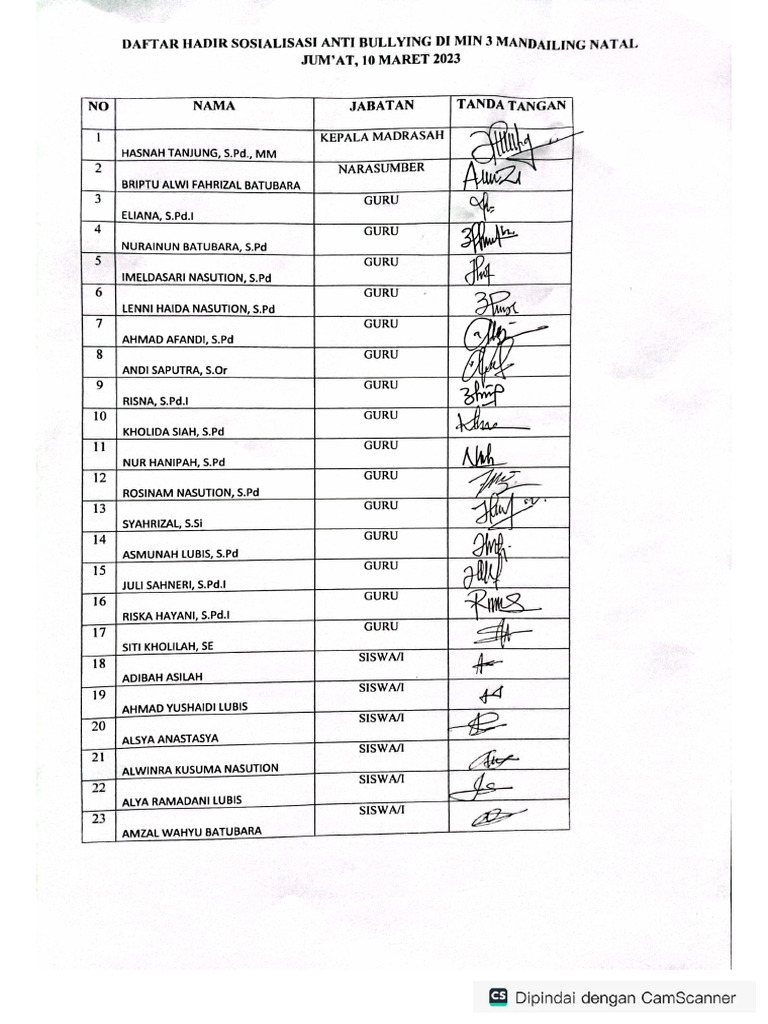 DAFTAR HADIR SOSIALISASI ANTI BULLYING DI MIN 3 MANDAILING NATAL
JUM'AT, 10 MARET 2023
NO NAMA JABATAN TANDA TANGAN
1 HASNAH TANJUNG, S.Pd., MM KEPALA MADRASAH
2 BRIPTU ALWI FAHRIZAL BATUBARA NARASUMBER
3 ELIANA, S.Pd.I GURU
4 NURAINUN BATUBARA, S.Pd GURU
5 IMELDASARI NASUTION, S.Pd GURU
6 LENNI HAIDA NASUTION, S.Pd GURU
7 AHMAD AFANDI, S.Pd GURU
8 ANDI SAPUTRA, S.Or GURU
9 RISNA, S.Pd.I GURU
10 KHOLIDA SIAH, S.Pd GURU
11 NUR HANIPAH, S.Pd GURU
12 ROSINAM NASUTION, S.Pd GURU
13 SYAHRIZAL, S.Si GURU
14 ASMUNAH LUBIS, S.Pd GURU
15 JULI SAHNERI, S.Pd.I GURU
16 RISKA HAYANI, S.Pd.I GURU
17 SITI KHOLILAH, SE GURU
18 ADIBAH ASILAH SISWA/I
19 AHMAD YUSHAIDI LUBIS SISWA/I
20 ALSYA ANASTASYA SISWA/I
21 ALWINRA KUSUMA NASUTION SISWA/I
22 ALYA RAMADANI LUBIS SISWA/I
23 AMZAL WAHYU BATUBARA SISWA/I
CS Dipindai dengan CamScanner